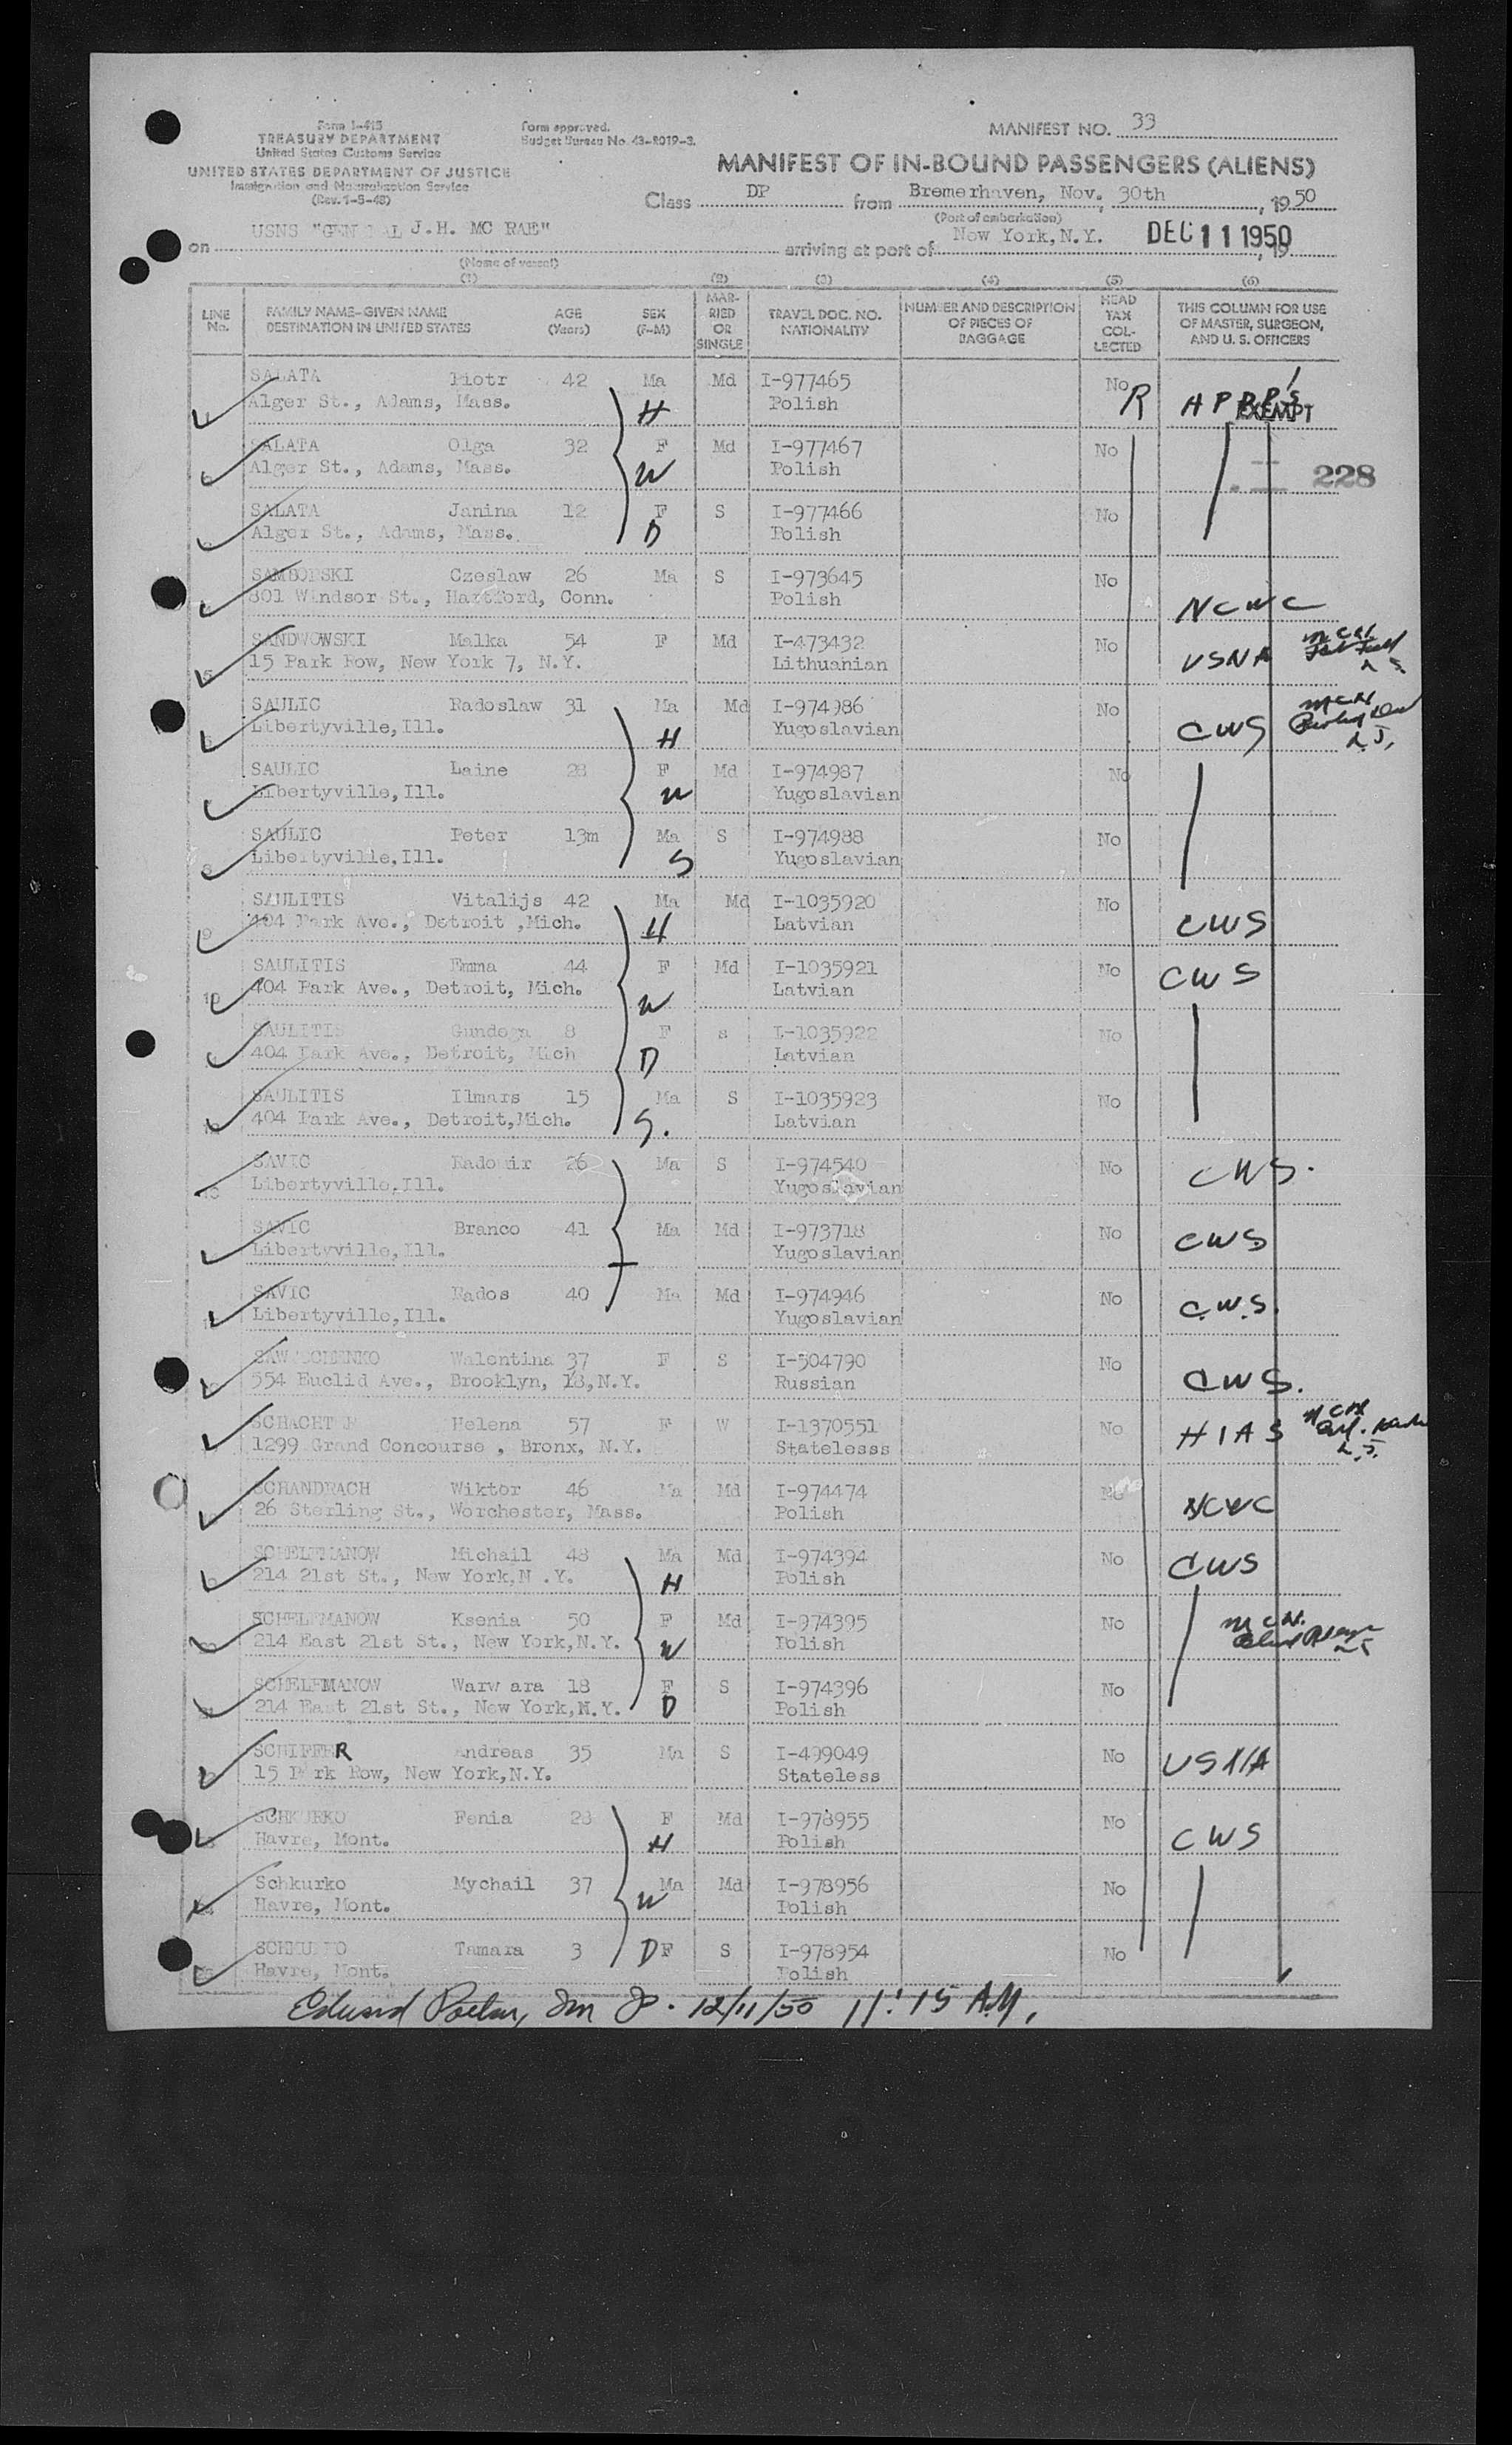 Form I-415
TREASURY DEPARTMENT
United States Customs Service
UNITED STATES DEPARTMENT OF JUSTICE
Immigration and Naturalization Service
(Rev. 1-5-48)
Form approved.
Budget Bureau No. 43-R019-3.
MANIFEST NO. 33
MANIFEST OF IN-BOUND PASSENGERS (ALIENS)
Class DP from Bremerhaven, Nov. 30th, 1950
(Port of embarkation)
on USNS "GENERAL J.H. MC RAE" arriving at port of New York, N.Y. DEC 11 1950, 19
(Name of vessel)
(1) (2) (3) (4) (5) (6)
LINE No. FAMILY NAME-GIVEN NAME DESTINATION IN UNITED STATES AGE (Years) SEX (F-M) MARRIED OR SINGLE TRAVEL DOC. NO. NATIONALITY NUMBER AND DESCRIPTION OF PIECES OF BAGGAGE HEAD TAX COLLECTED THIS COLUMN FOR USE OF MASTER, SURGEON, AND U. S. OFFICERS
SALATA Piotr 42 Ma Md I-977465 No R A P B P's
Alger St., Adams, Mass. H Polish EXEMPT
SALATA Olga 32 F Md I-977467 No
Alger St., Adams, Mass. W Polish 228
SALATA Janina 12 F S I-977466 No
Alger St., Adams, Mass. D Polish
SAMBORSKI Czeslaw 26 Ma S I-973645 No
801 Windsor St., Hartford, Conn. Polish NCWC
SANDWOWSKI Malka 54 F Md I-473432 No
15 Park Row, New York 7, N.Y. Lithuanian USNA
SAULIC Radoslaw 31 Ma Md I-974986 No
Libertyville, Ill. H Yugoslavian CWS
SAULIC Laine 28 F Md I-974987 No
Libertyville, Ill. W Yugoslavian
SAULIC Peter 13m Ma S I-974988 No
8 Libertyville, Ill. S Yugoslavian
SAULITIS Vitalijs 42 Ma Md I-1035920 No
9 404 Park Ave., Detroit ,Mich. H Latvian CWS
SAULITIS Emma 44 F Md I-1035921 No CWS
10 404 Park Ave., Detroit, Mich. W Latvian
SAULITIS Gundega 8 F s I-1035922 No
404 Park Ave., Detroit, Mich D Latvian
SAULITIS Ilmars 15 Ma S I-1035923 No
12 404 Park Ave., Detroit,Mich. S. Latvian
SAVIC Radomir 26 Ma S I-974540 No CWS.
Libertyville, Ill. Yugoslavian
SAVIC Branco 41 Ma Md I-973718 No
Libertyville, Ill. Yugoslavian CWS
SAVIC Rados 40 Ma Md I-974946 No
Libertyville, Ill. Yugoslavian C.W.S.
Walentina 37 F S I-504790 No
554 Euclid Ave., Brooklyn, 18, N.Y. Russian CWS.
Helena 57 F W I-1370551 No
1299 Grand Concourse , Bronx, N.Y. Statelesss HIAS
SCHANDRACH Wiktor 46 Ma Md I-974474 No
26 Sterling St., Worchester, Mass. Polish NCWC
SCHELEMANOW Michail 48 Ma Md I-974394 No
214 21st St., New York,N .Y. H Polish CWS
SCHELEMANOW Ksenia 50 F Md I-974395 No
214 East 21st St., New York,N.Y. W Polish
SCHELEMANOW Warw ara 18 F S I-974396 No
214 East 21st St., New York,N.Y. D Polish
SCHIFFER Andreas 35 Ma S I-499049 No
15 Park Row, New York,N.Y. Stateless USNA
SCHKURKO Fenia 28 F Md I-978955 No
Havre, Mont. H Polish CWS
Schkurko Mychail 37 Ma Md I-978956 No
Havre, Mont. W Polish
SCHKURKO Tamara 3 D F S I-978954 No
Havre, Mont. Polish
12/11/50 11:15 A.M.